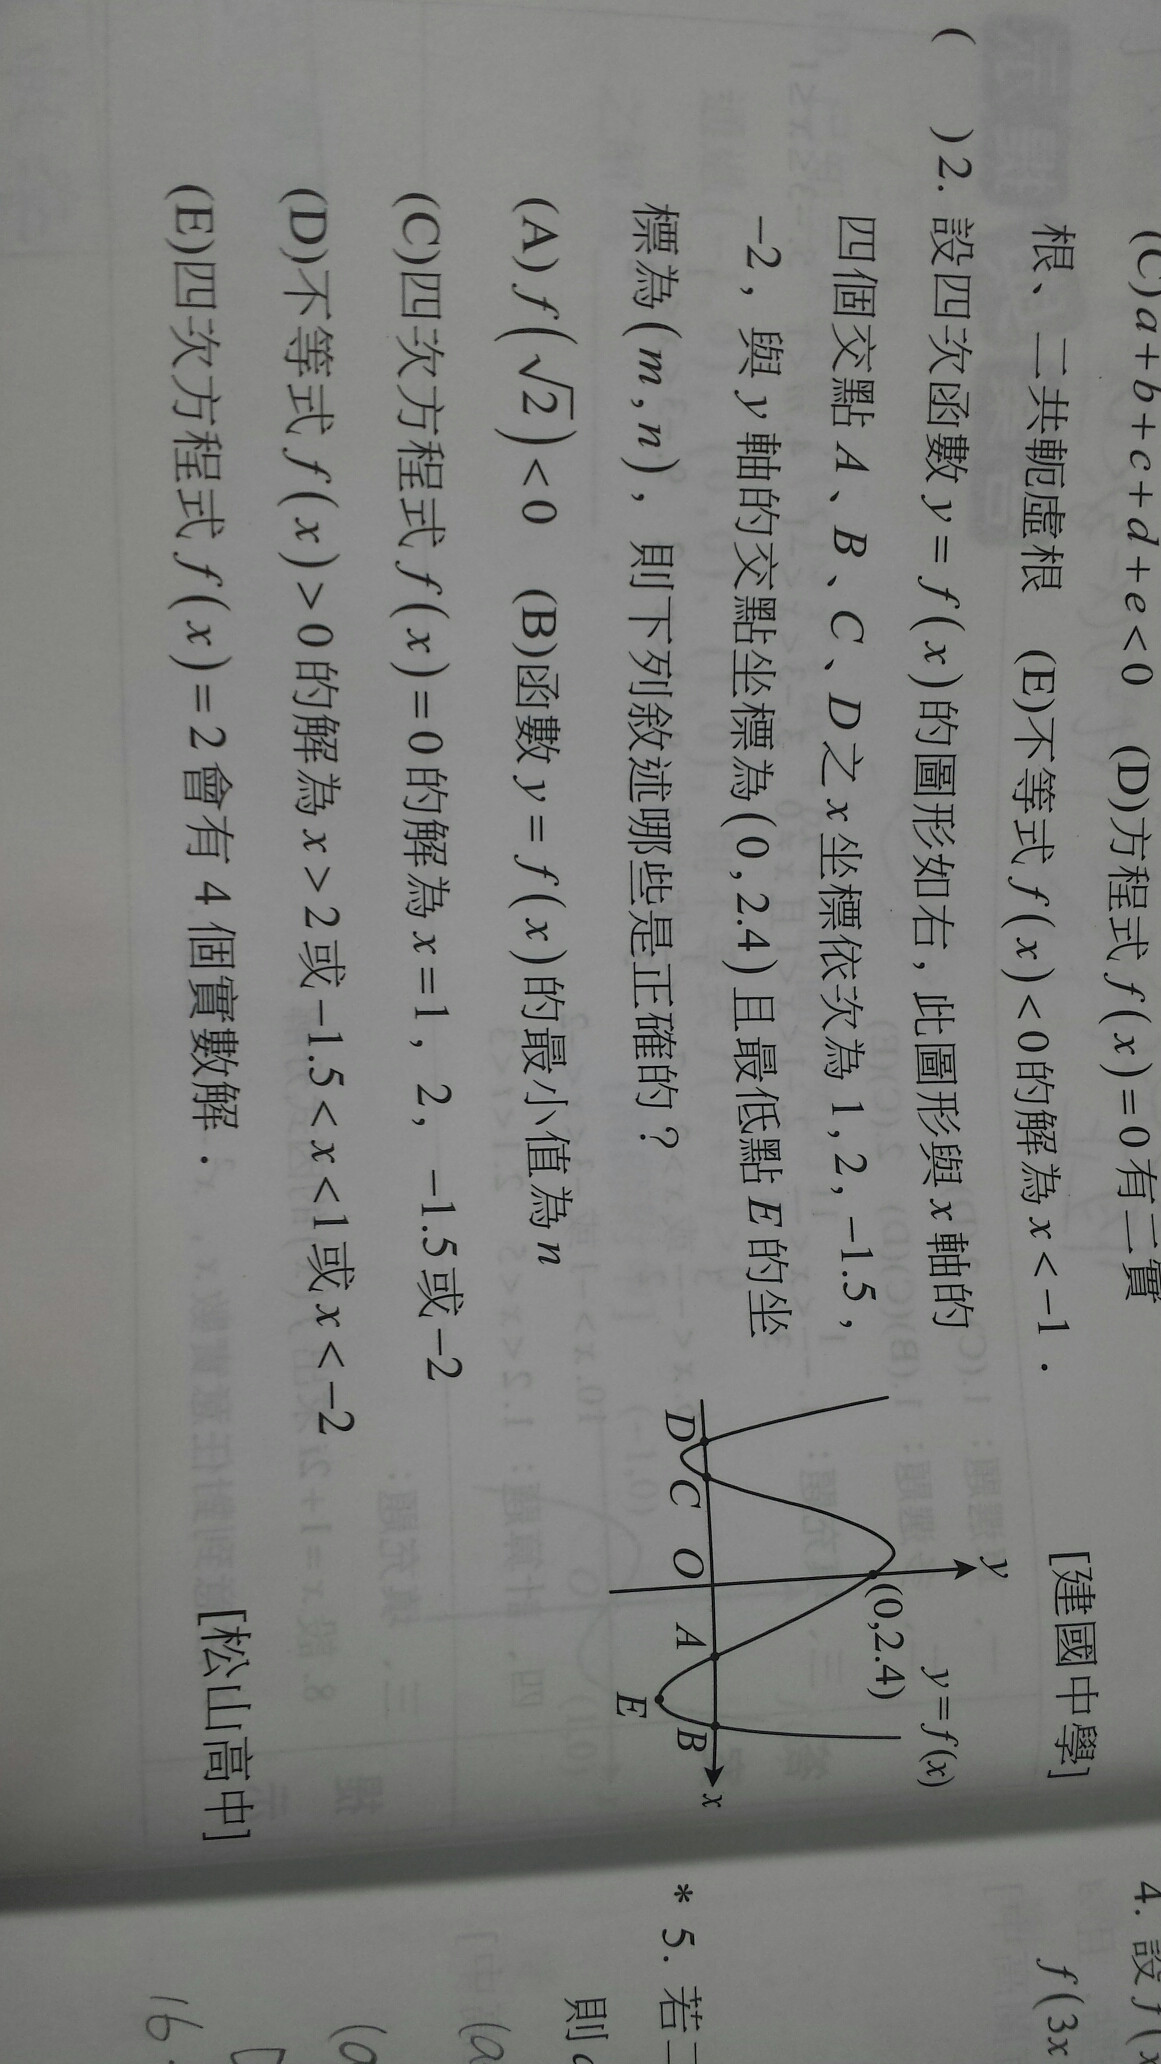 (C)a+b+c+d+e<0 (D)方程式 f(x)=0有二實
根、二共軛虛根 (E)不等式 f(x)<0的解為 x<-1.
[建國中學]
( )2. 設四次函數 y=f(x)的圖形如右,此圖形與 x 軸的
四個交點 A、B、C、D 之 x 坐標依次為 1,2,-1.5,
-2,與 y 軸的交點坐標為(0,2.4)且最低點 E 的坐
標為(m,n),則下列敘述哪些是正確的?
(A) f(√2)<0 (B)函數 y=f(x)的最小值為 n
(C)四次方程式 f(x)=0的解為 x=1,2,-1.5或-2
(D)不等式 f(x)>0的解為 x>2或-1.5<x<1或 x<-2
(E)四次方程式 f(x)=2會有 4 個實數解.
[松山高中]
y
y=f(x)
(0,2.4)
D C O A B x
E
4. 設 f(x
f(3x
* 5. 若二
則 a
(a
(a
16.